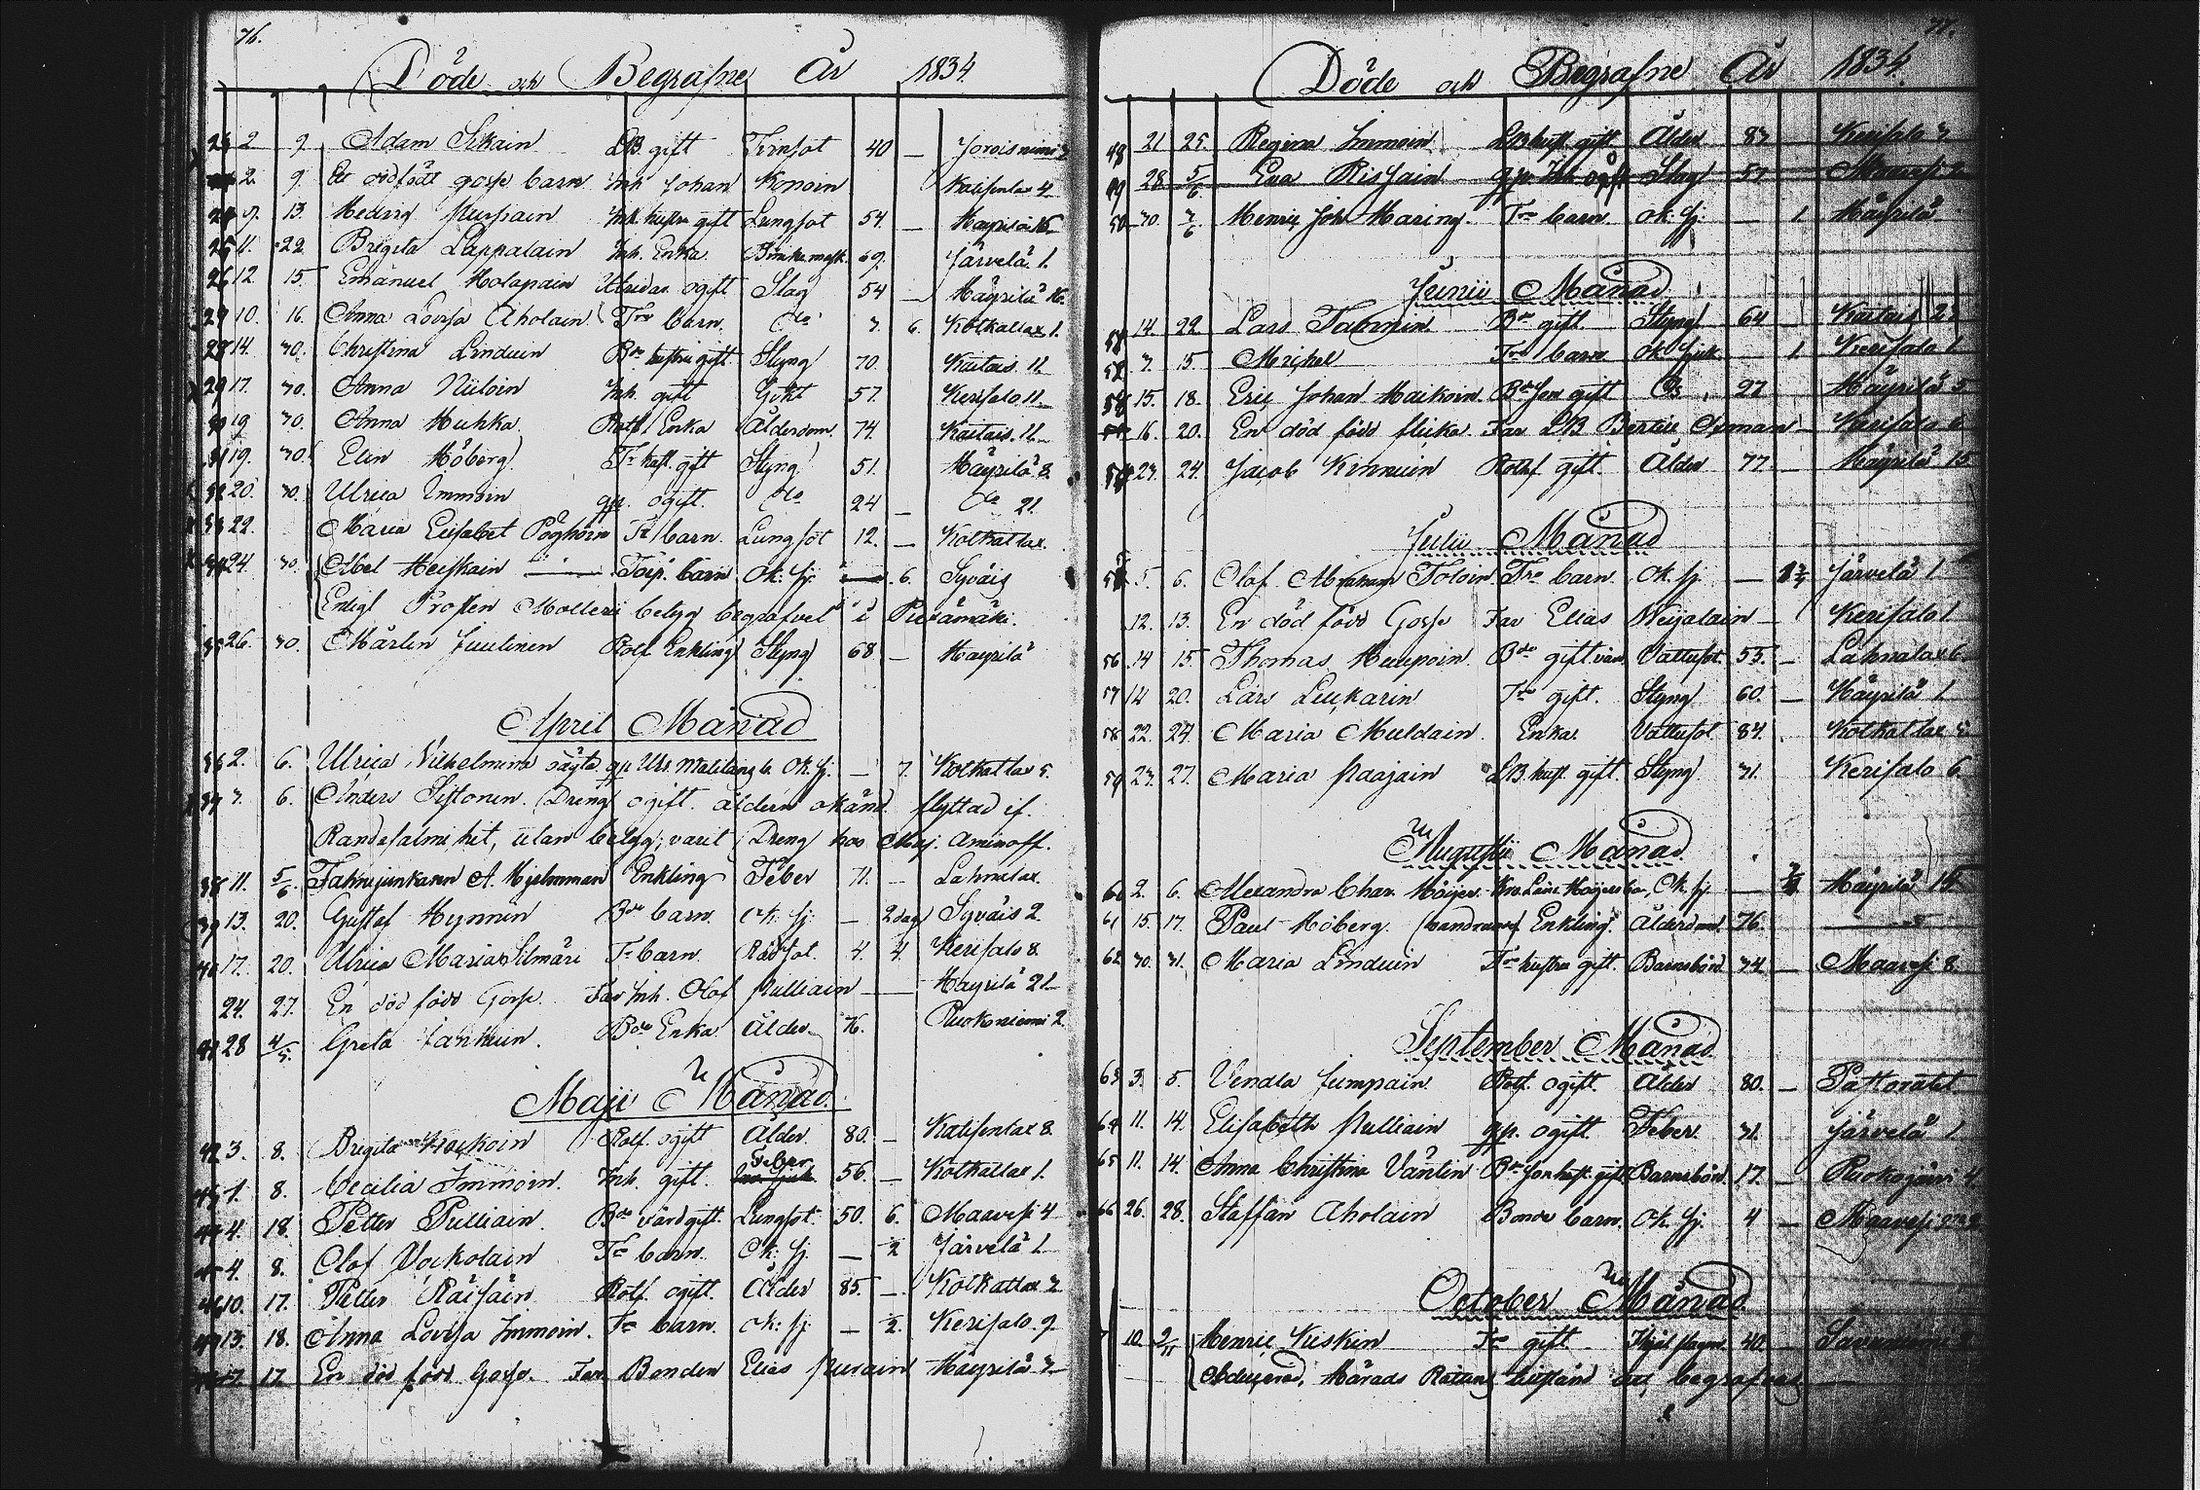 76.
Döde och Begrafne År 1834.
23 2 9. Adam Sikain LB. gift Tvinsot 40 — Jorois
2. 9. Ett död födt gosse barn Inh. Johan Konoin Kalisenlax 4.
24 9. 13. Hedvig Inh. hustru gift Lungsot 54. — Häyrilä 16
25 11. 22 Brigita Lappalain Inh. Enka 69. Järvelä 1.
26 12. 15. Emanuel Holapain ogift Slag 54 — Häyrilä 16
27 10. 16. Anna Lovisa Aholain Trp barn do 3. 6. Kolkallax 1.
28 14. 30. Christina Linduin Bde hustru gift Styng 70. Kaitais 11
29 17. 30. Anna Niiloin Inh. gift Gikt 57. Kerisalo 11
30 19 30. Anna Huhka Rotf. Enka Ålderdom. 74. Kaitais 11
31 19. 30. Elin Möberg Tr hust. gift Styng 51. Häyrilä 8.
32 20. 30. Ulrica Immoin gp. ogift. do 24 — do 21.
33 22. Maria Elisabet Pöyhöin Tr barn. Lungsot 12. — Kolkallax.
34 24. 30. Abel Heiskain Torp. barn Ok. sj. — 6. Syväis
Enligt Prosten Molleri betyg begrafvet i Piexämäki.
35 26. 30. Mårten Juulinen Rotf. Enkling Styng 68. — Häyrilä
April Månad
36 2. 6. Ulrica Vilhelmina oägta gp. Ulr. b. Ok. sj. — 7. Kolkallax 5.
37 3. 6. Anders Sistonen. Dreng ogift. åldern okänd. flyttad if.
Randasalmi hit, utan betyg; varit Dreng hos Maj. Aminoff.
38 11. 5/6. Fahnejunkaren A. Hjelmman Enkling Feber 71. — Lahnalax.
39 13. 20. Gustaf Hynninen Bde barn Ok. sj. — 2 dag Syväis 2.
40 17. 20. Ulrica Maria Silmäri Tr barn. Rödsot. 4. 4. Kerisalo 8.
24. 27. En död född Gosse. Far Inh. Olof Pulliain — Häyrilä 21
41 28 4/5. Greta Bde Enka Ålder 76. Ruokoniemi 2.
Maji Månad.
42 3. 8. Brigita Rotf. ogift Ålder. 80. — Kalisenlax 8.
43 1. 8. Cecilia Immoin. Inh. gift. Feber 56. — Kolkallax 1.
44 4. 18. Petter Pulliain. Bde värd gift. Lungsot. 50. 6. Maavesi 4
45 4. 8. Olof Tr barn. Ok. sj. — 2 Järvelä 1
46 10. 17. Petter Räisäin Rotf. ogift. Ålder 85. — Kolkallax 2
47 13. 18. Anna Lovisa Immoin. Tr barn. Ok. sj. — 2. Kerisalo. 9
17. En död född Gosse. Far Bonden Elias Purain Häyrilä 3
77.
Döde och Begrafne År 1834
48 21 25. Regina Immoin LB hust. gift Ålder 83 — Kerisalo 3
49 28 5/6. Eva Rissain gp. Inh. ogift Slag 57 — Maavesi 2
50 30 3/6 Henric Joh. Haring. Trp barn. Ok. sj. — 1. Häyrilä
Junii Månad
51 14. 22 Lars Bde gift. Styng 64 — Kaitais 2
52 3. 15. Michel Trp barn Ok. sjuk — 1. Kerisalo 1
53 15. 18. Eric Johan Maikoin Bde son gift do 27 — Häyrilä 5
16. 20. En död född flicka. Far LB. — Kerisalo 6
54 23. 24. Jacob Kinnuin Rotf. gift. Ålder 77 — Häyrilä 15
Julii Månad
55 5. 6. Olof Abraham Toloin Trp barn. Ok. sj. — Järvelä 1
12. 13. En död född Gosse Far Elias Neijalain — Kerisalo 1.
56 14 15. Thomas Haupoin. Bde gift värd Vattusot. 55. — Lahnalax 6.
57 14 20. Lars Leuкarin Trp gift. Styng 60. — Häyrilä 1
58 22. 24. Maria Muldain Enka Vattusot 84. Kolkallax 5
59 23. 27. Maria Raajain LB hust. gift. Styng 31. Kerisalo 6
Augusti Månad.
60 2. 6. Alexandra Char. Höijer Ok. sj. — Häyrilä 15
61 15. 17. Paul Möberg. Enkling Ålderdom. 76. —
62 30. 31. Maria Linduin Trp hustru gift. Barnsbörd 34 — Maavesi 8
September Månad
63 3. 5. Vendla Jumpain Rotf. ogift. Ålder 80. — Pastoratet
64 11. 14. Elisabeth Pulliain gp. ogift. Feber. 31. Järvelä 1
65 11. 14. Anna Christina Väntin Bde son hust. gift Barnsbörd. 17. — Ruokojärvi 4
66 26. 28. Staffan Aholain Bonde barn. Ok. sj. 4 — Maavesi
October Månad
10. 2/11 Henric Kiskin Trp gift 40. —
Obducerad, Härads Rättens att begrafvas